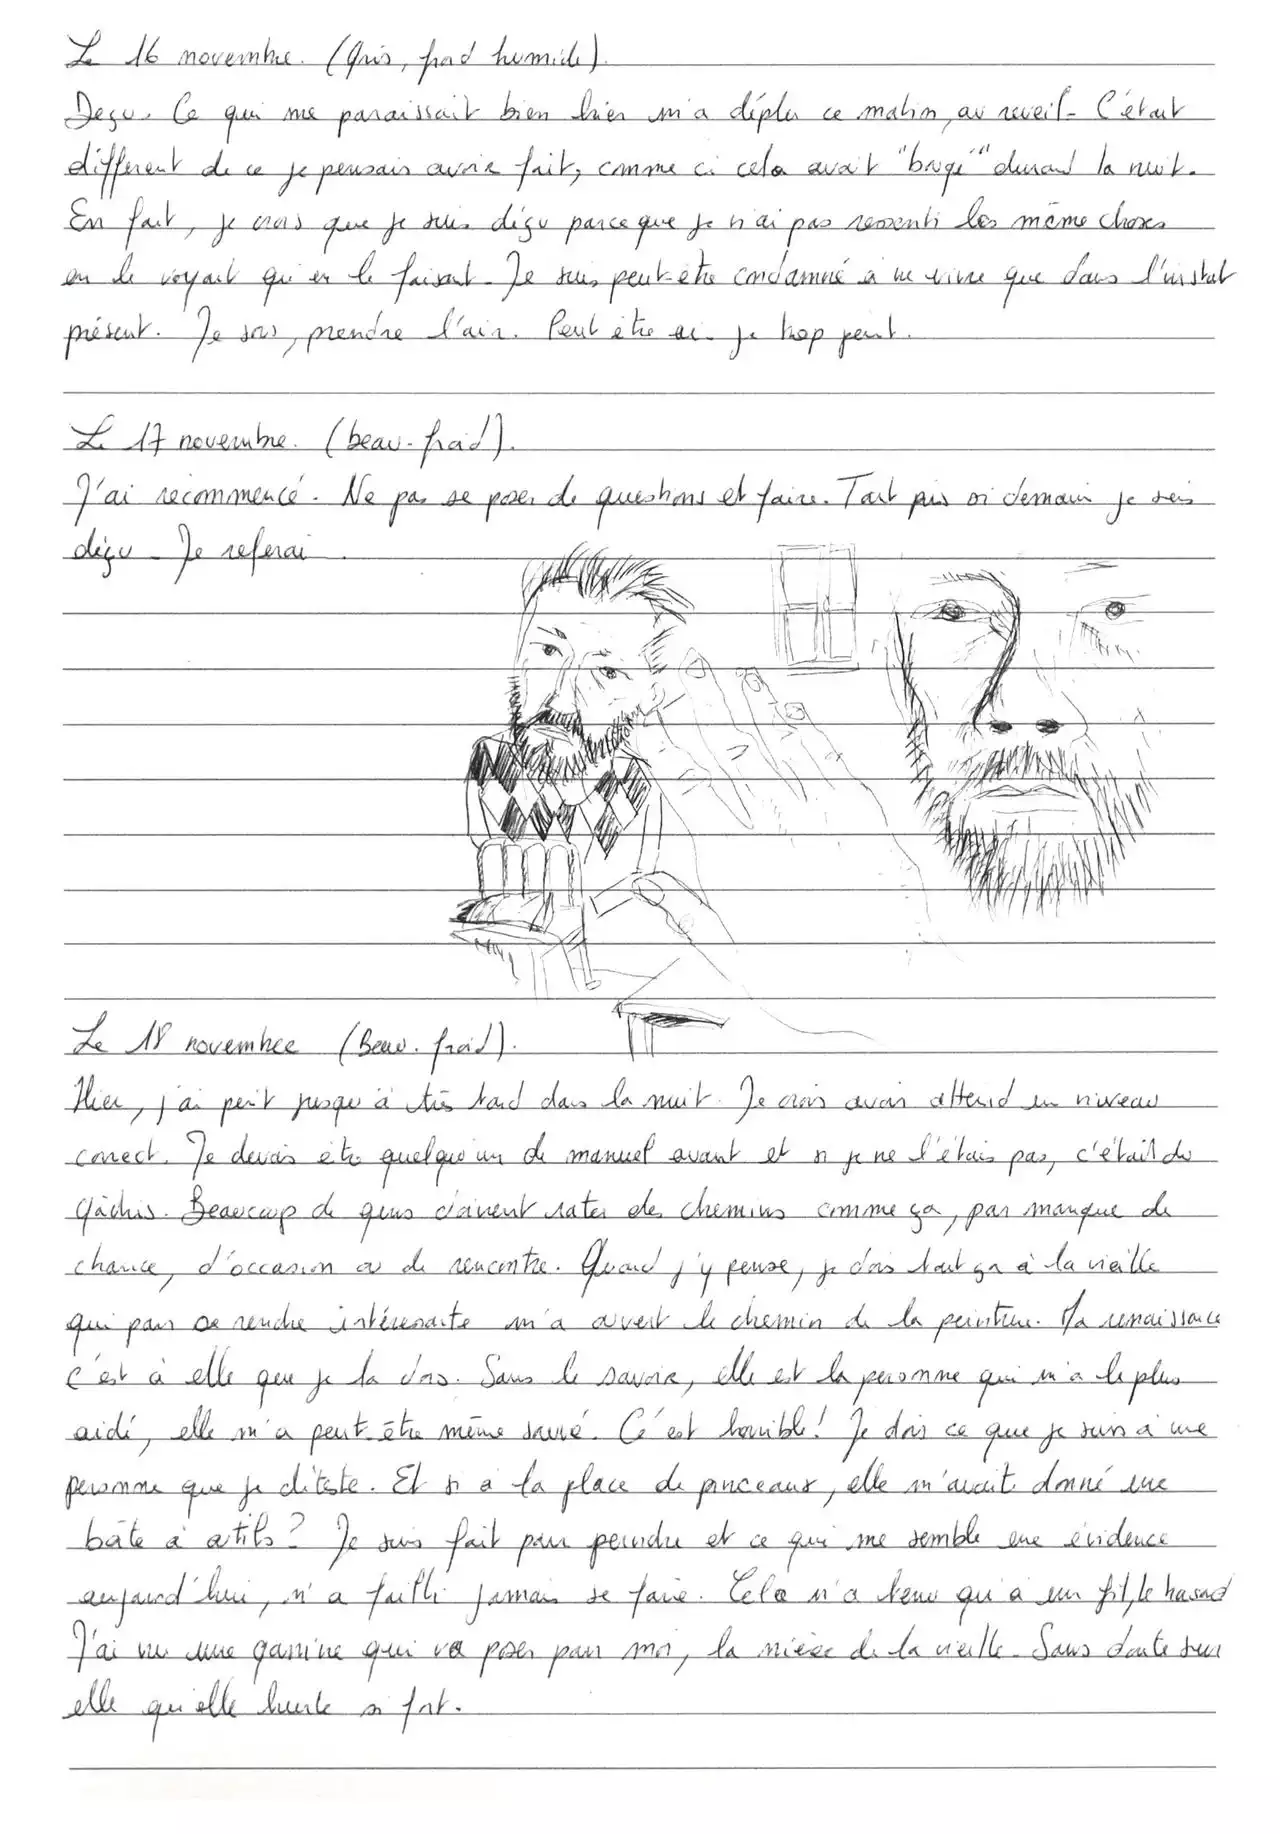 Le 16 novembre. (Gris, froid humide).
Deçu. Ce qui me paraissait bien hier m'a déplu ce matin, au reveil. C'était
différent de ce je pensais avoir fait, comme ci cela avait "bougé" durant la nuit.
En fait, je crois que je suis déçu parce que je n'ai pas ressenti les même choses
en le voyant qu'en le faisant. Je suis peut-être condamné à ne vivre que dans l'instant
présent. Je sors, prendre l'air. Peut être ai-je trop peint.
Le 17 novembre. (beau. froid).
J'ai recommencé. Ne pas se poser de questions et faire. Tant pis si demain je suis
déçu. Je referai.
Le 18 novembre (Beau. froid).
Hier, j'ai peint jusqu'à très tard dans la nuit. Je crois avoir atteind un niveau
correct. Je devais être quelqu'un de manuel avant et si je ne l'étais pas, c'était du
gâchis. Beaucoup de gens doivent rater des chemins comme ça, par manque de
chance, d'occasion ou de rencontre. Quand j'y pense, je dois tout ça à la vieille
qui pour se rendre intéressante m'a ouvert le chemin de la peinture. Ma renaissance
c'est à elle que je la dois. Sans le savoir, elle est la personne qui m'a le plus
aidé, elle m'a peut-être même sauvé. C'est horrible! Je dois ce que je suis à une
personne que je déteste. Et si à la place de pinceaux, elle m'avait donné une
boîte à outils? Je suis fait pour peindre et ce qui me semble une évidence
aujourd'hui, n'a failli jamais se faire. Cela n'a tenu qu'à un fil, le hasard
J'ai vu une gamine qui va poser pour moi, la nièce de la vieille. Sans doute sur
elle qu'elle hurle si fort.